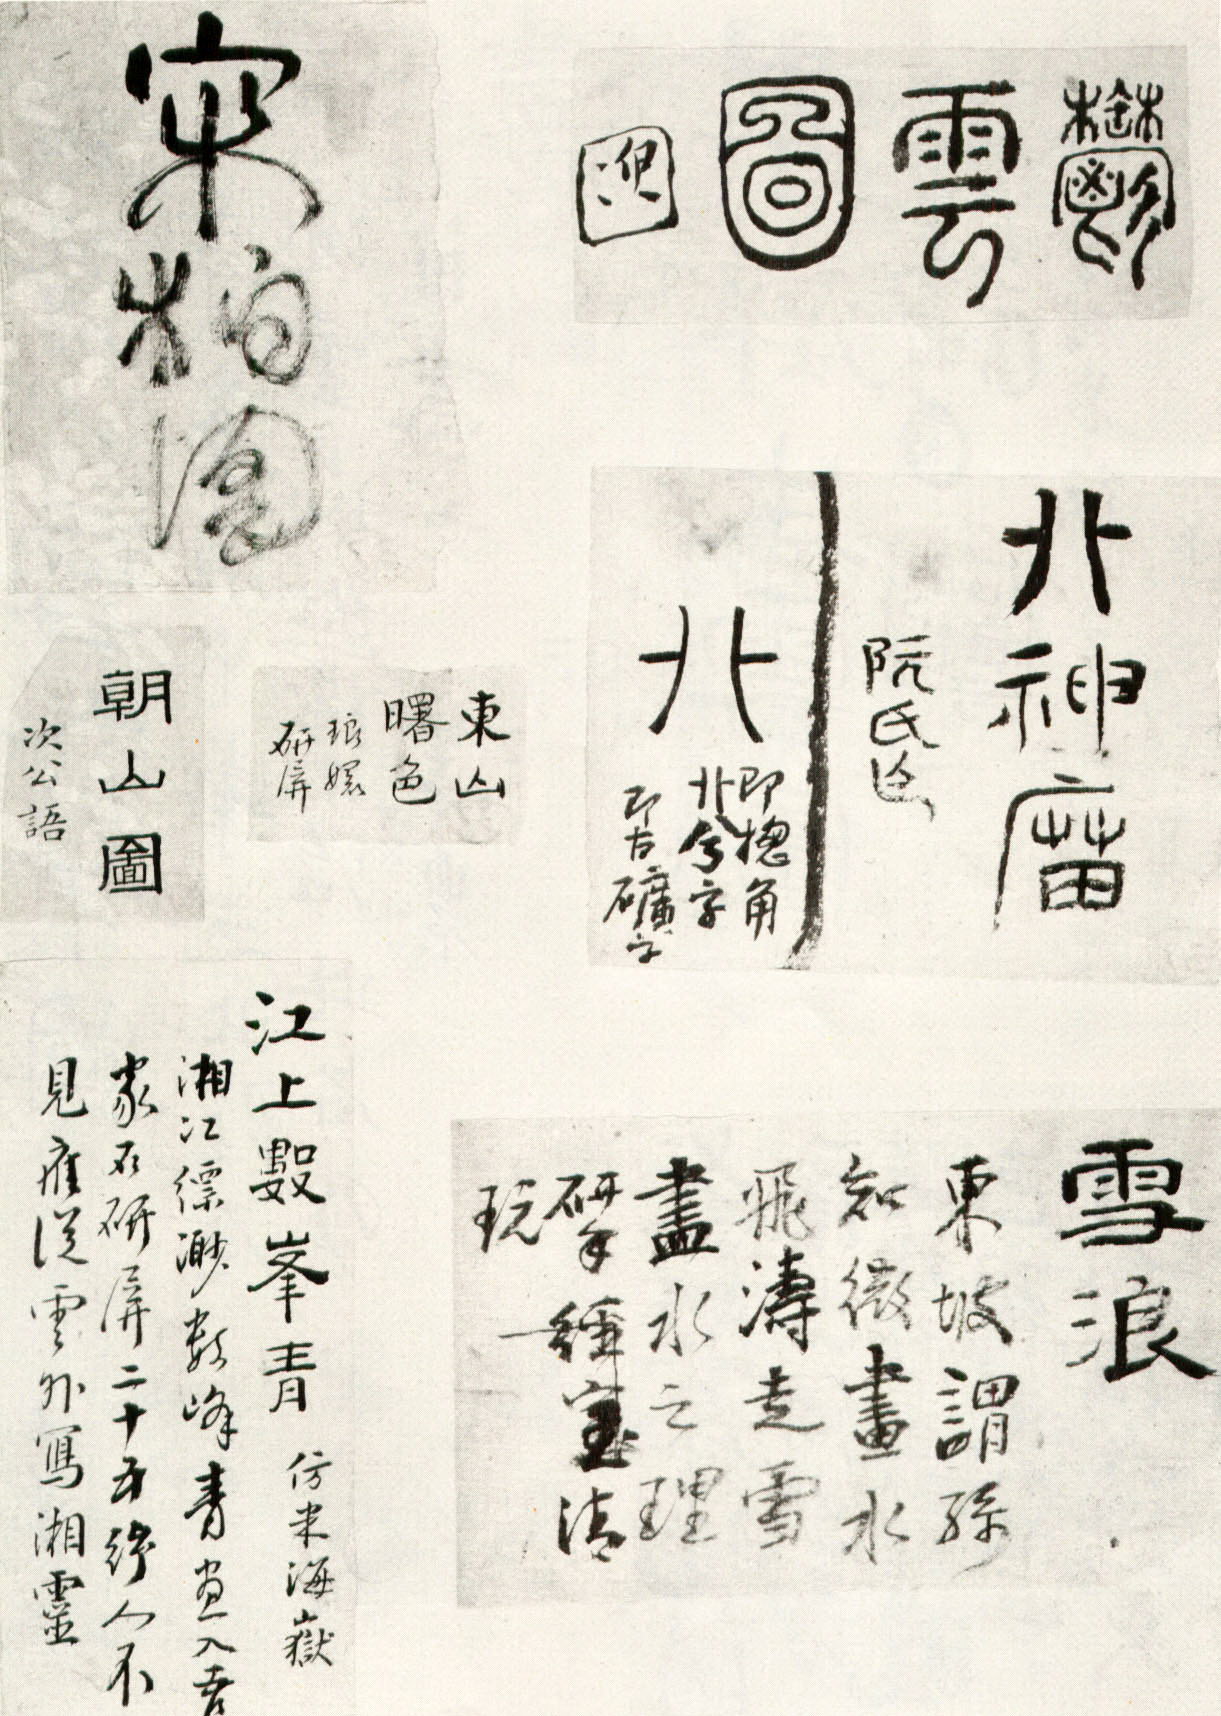 鬱雲圖
宋柏圖
北神齒
阮氏
北
即㧾角
北兮字
即古礦字
東山
曙色
琅嬛
研屏
朝山圖
次公語
江上數峯青
仿米海嶽
湘江縹渺數峰青畫入吾
家石研屏二十五絃人不
見雁從雲外寫湘靈
雪浪
東坡謂孫
知微畫水
飛濤走雪
盡水之理
研山
種玉清
玩